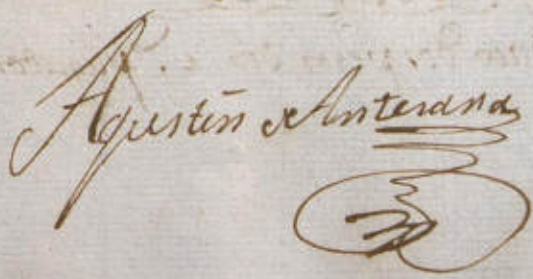 Agustin de Anterana